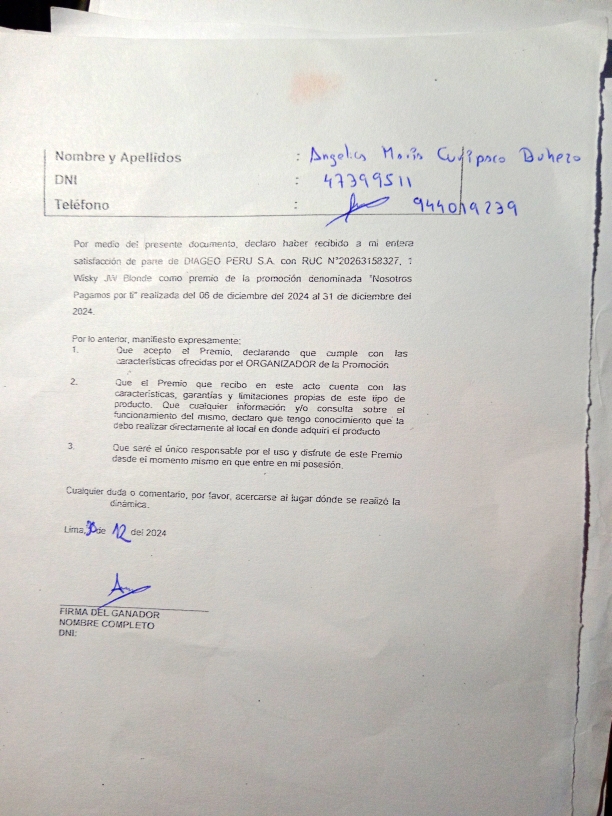 Nombre y Apellidos : Angelica María
DNI : 47399511
Teléfono : 944019239
Por medio del presente documento, declaro haber recibido a mi entera
satisfacción de parte de DIAGEO PERU S.A. con RUC N°20263158327, 1
Wisky JW Blonde como premio de la promoción denominada "Nosotros
Pagamos por ti" realizada del 06 de diciembre del 2024 al 31 de diciembre del
2024.
Por lo anterior, manifiesto expresamente:
1. Que acepto el Premio, declarando que cumple con las
características ofrecidas por el ORGANIZADOR de la Promoción
2. Que el Premio que recibo en este acto cuenta con las
características, garantías y limitaciones propias de este tipo de
producto. Que cualquier información y/o consulta sobre el
funcionamiento del mismo, declaro que tengo conocimiento que la
debo realizar directamente al local en donde adquirí el producto
3. Que seré el único responsable por el uso y disfrute de este Premio
desde el momento mismo en que entre en mi posesión.
Cualquier duda o comentario, por favor, acercarse al lugar dónde se realizó la
dinámica.
Lima, de 12 del 2024
FIRMA DEL GANADOR
NOMBRE COMPLETO
DNI: